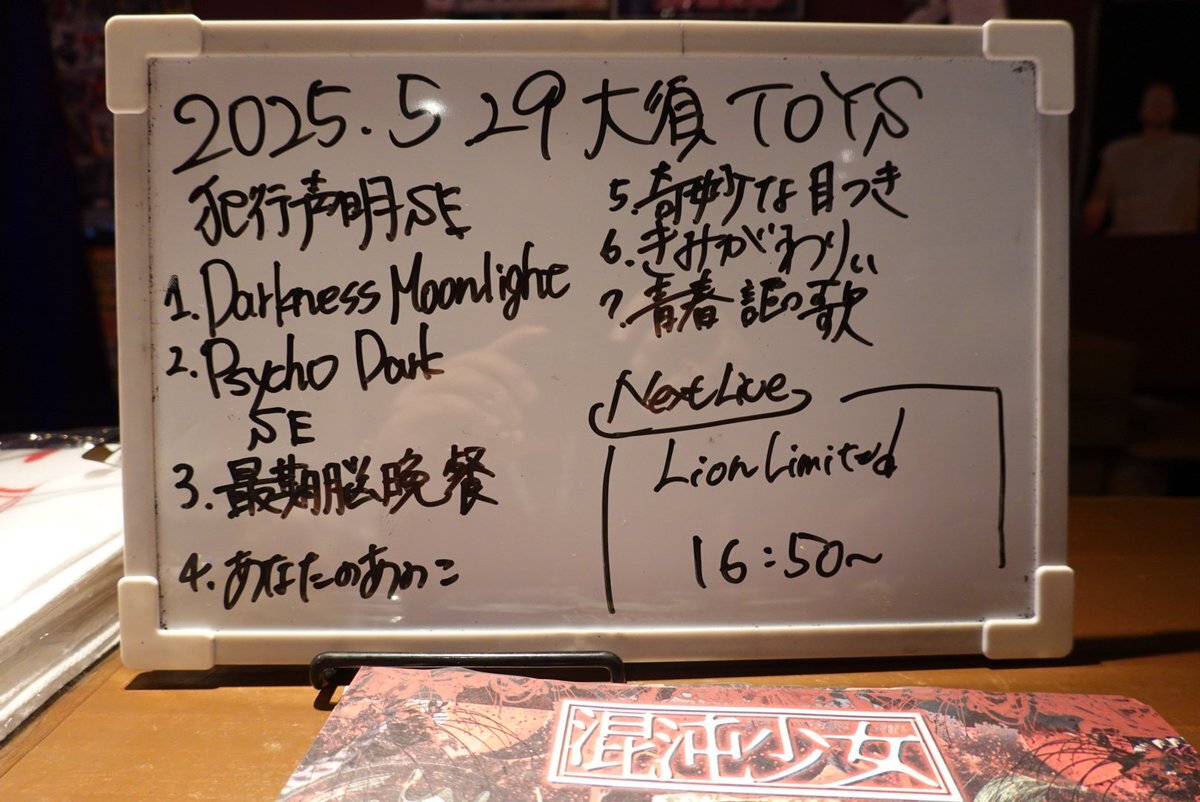 2025.5 29 大須 TOYS
犯行声明SE
1. Darkness Moonlight
2. Psycho Dark
SE
3. 最期脳晩餐
4. あなたのあのこ
5. 奇妙な目つき
6. きみがわりぃ
7. 青春 詎の歌
Next Live
Lion Limited
16:50~
混沌少女